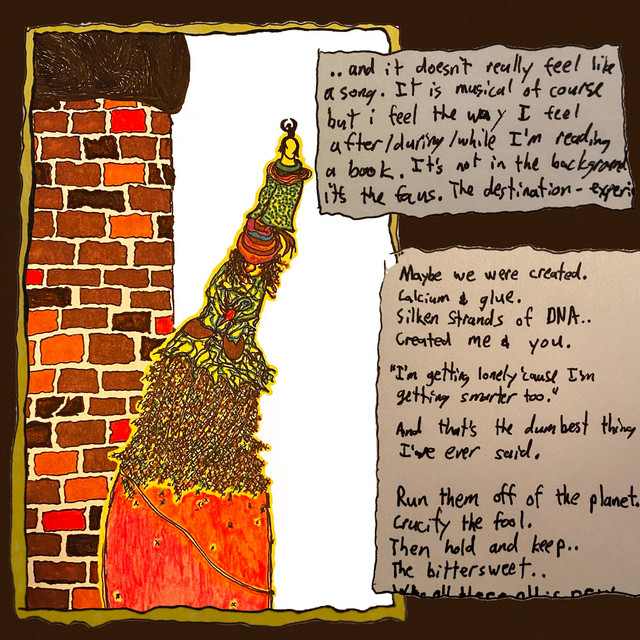 .. and it doesn't really feel like
a song. It is musical of course
but i feel the way I feel
after/during/while I'm reading
a book. It's not in the background
it's the focus. The destination - experi
Maybe we were created.
Calcium & glue.
Silken strands of DNA..
Created me & you.
"I'm getting lonely 'cause I'm
getting smarter too."
And that's the dumbest thing
I've ever said.
Run them off of the planet.
Crucify the fool.
Then hold and keep..
The bittersweet..